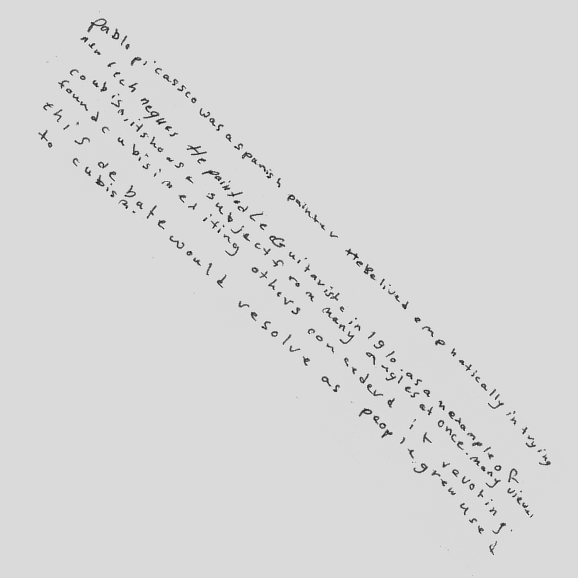 pablo picassco was a spanish painter He Belived emphatically in trying
new techneques He painted Le Guitariste in 1910. as a nexample of
coubism, it shows a subject from many angles at once. many viewrs
found cubisim exiting others concederd it ravoting.
this debate would resolve as people grew used
to cubism.